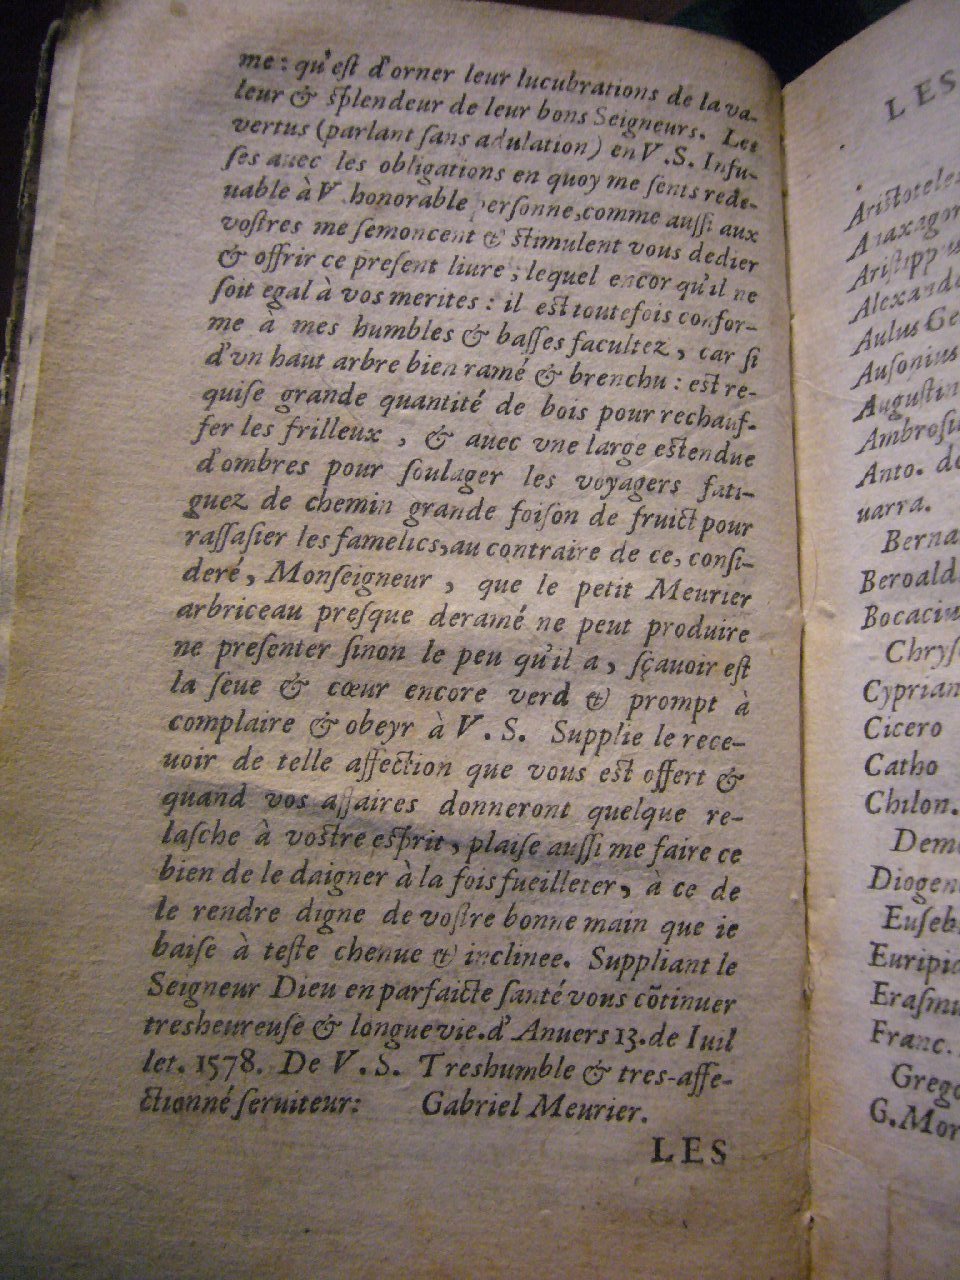 me: qu'eſt d'orner leur lucubrations de la va-
leur & ſplendeur de leur bons Seigneurs. Les
vertus (parlant ſans adulation) en V.S. Infu-
ſes auec les obligations en quoy me ſents rede-
uable à V. honorable perſonne, comme auſſi aux
voſtres me ſemoncent & ſtimulent vous dedier
& offrir ce preſent liure, lequel encor qu'il ne
ſoit egal à vos merites: il eſt toutefois confor-
me à mes humbles & baſſes facultez, car ſi
d'vn haut arbre bien ramé & brenchu: eſt re-
quiſe grande quantité de bois pour rechauf-
fer les frilleux, & auec vne large eſtendue
d'ombres pour ſoulager les voyagers fati-
guez de chemin grande foiſon de fruict pour
raſſaſier les famelics, au contraire de ce, conſi-
deré, Monſeigneur, que le petit Meurier
arbriceau preſque deramé ne peut produire
ne preſenter ſinon le peu qu'il a, ſçauoir eſt
la ſeue & cœur encore verd & prompt à
complaire & obeyr à V.S. Supplie le rece-
uoir de telle affection que vous eſt offert &
quand vos affaires donneront quelque re-
laſche à voſtre eſprit, plaiſe auſſi me faire ce
bien de le daigner à la fois fueilleter, à ce de
le rendre digne de voſtre bonne main que ie
baiſe à teſte chenue & inclinee. Suppliant le
Seigneur Dieu en parfaicte ſanté vous cõtinuer
tresheureuſe & longue vie. d'Anuers 13. de Iuil
let. 1578. De V.S. Treshumble & tres-affe-
ctionné ſeruiteur: Gabriel Meurier.
LES
LES
Ariſtoteles
Anaxagor
Ariſtippus
Alexande
Aulus Ge
Auſonius
Auguſtin
Ambroſiu
Anto. de
uarra.
Berna
Beroald
Bocaciu
Chryſ
Cyprian
Cicero
Catho
Chilon.
Demo
Diogen
Euſeb
Euripid
Eraſmu
Franc.
Grego
G. Mor